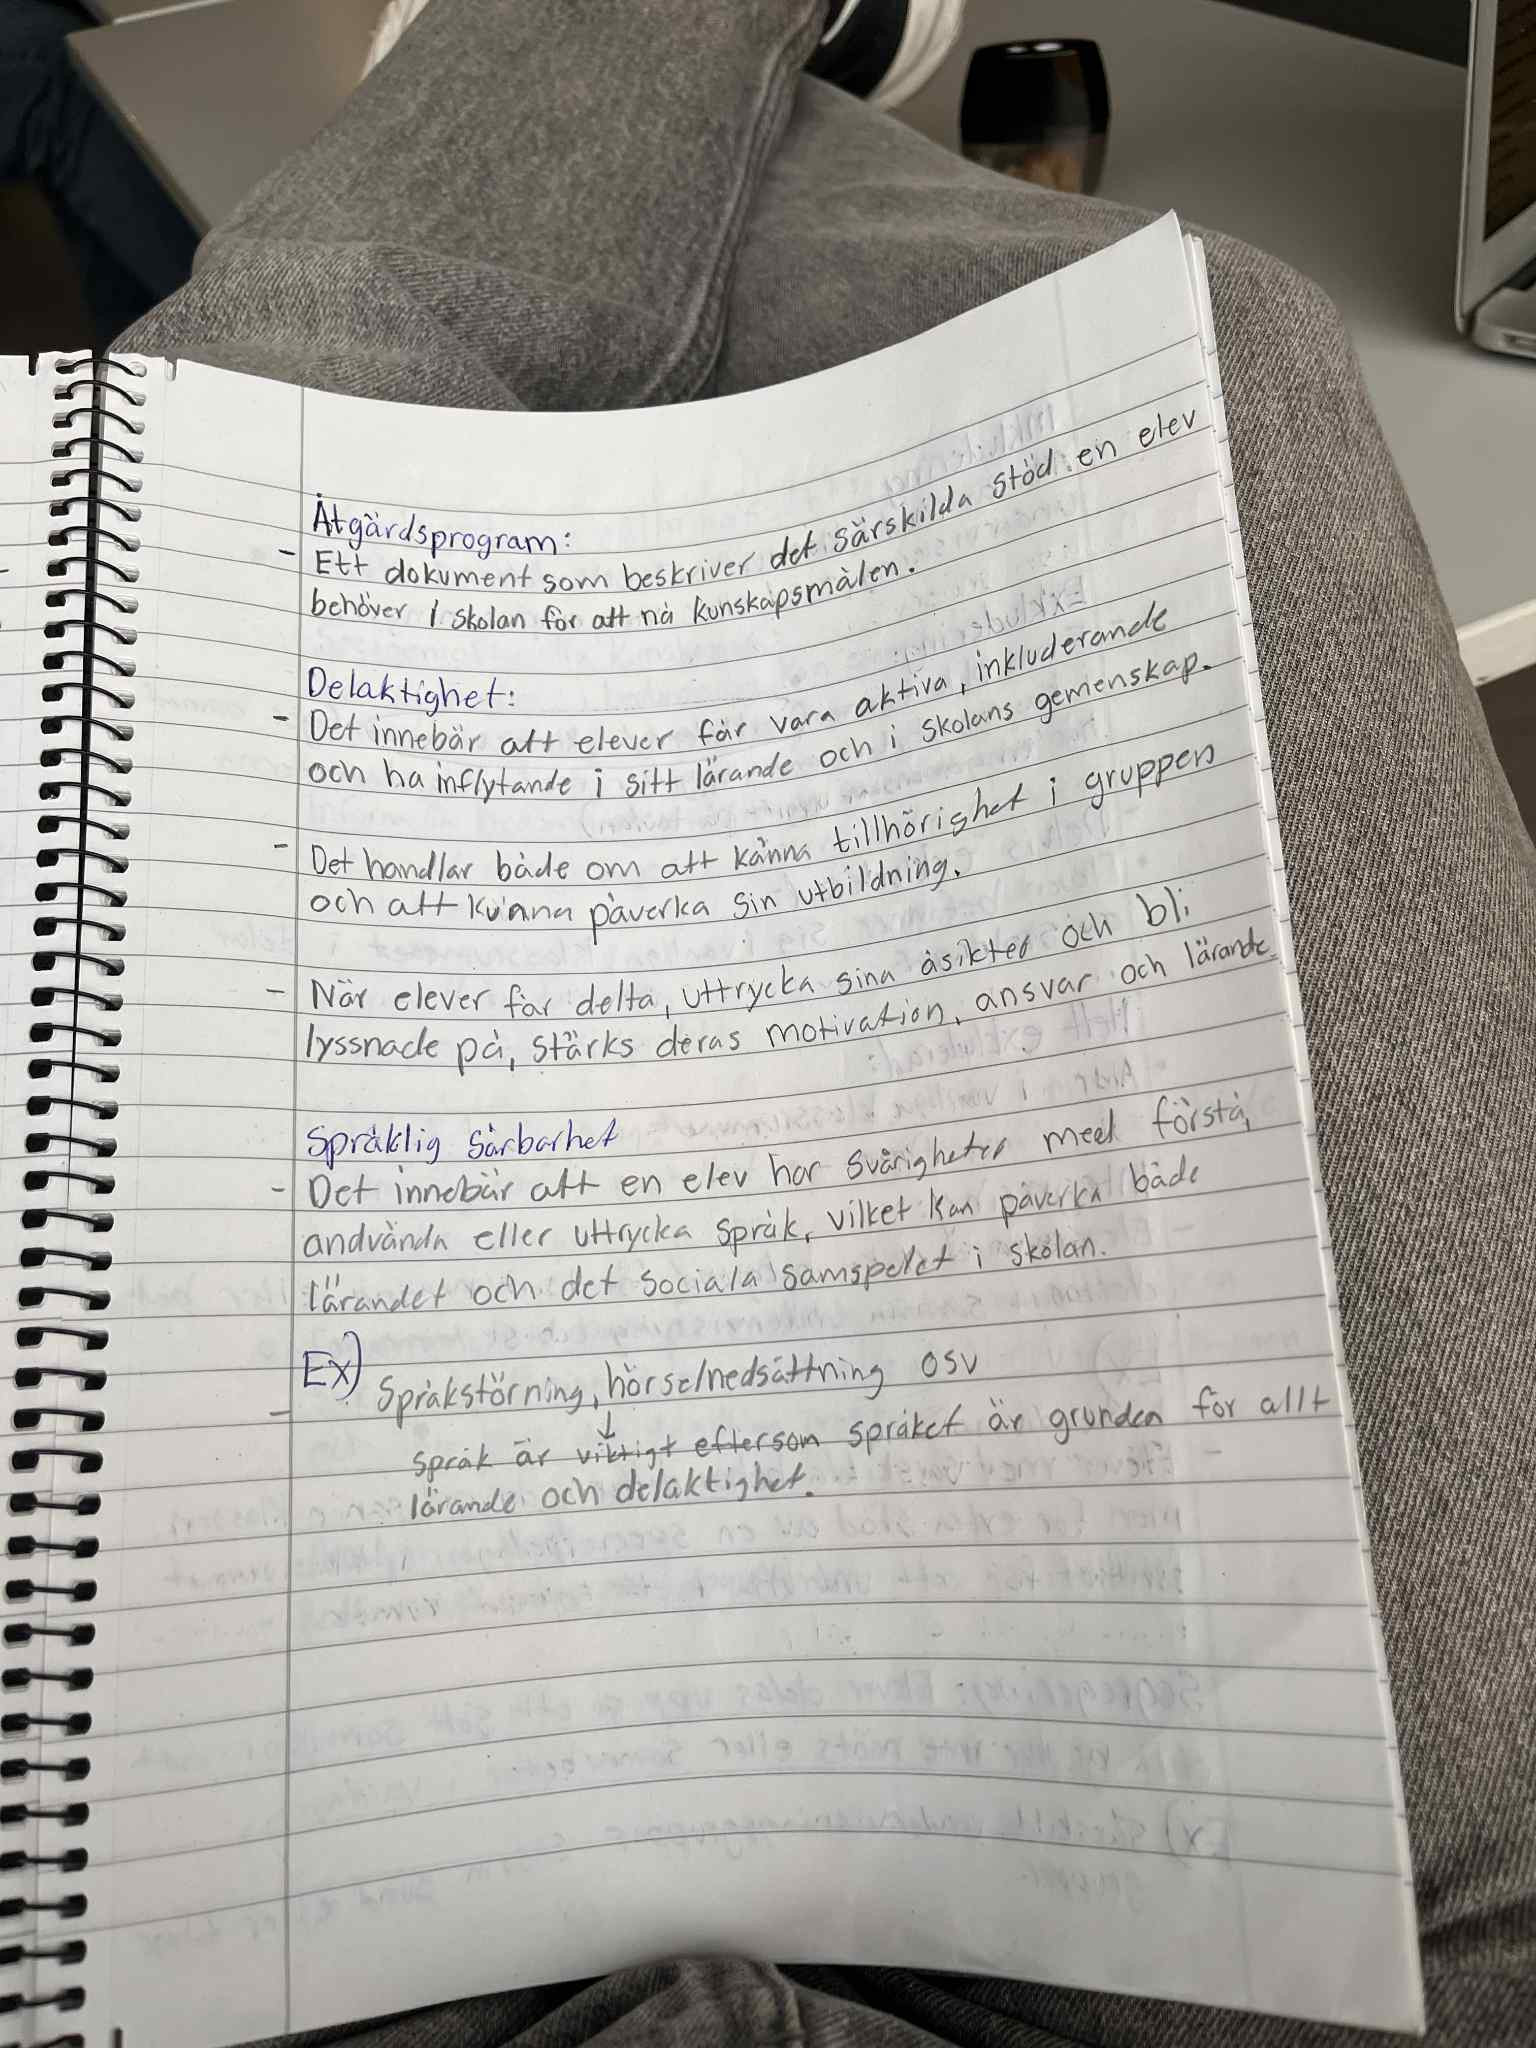 Åtgärdsprogram:
- Ett dokument som beskriver det särskilda stöd en elev
behöver i skolan för att nå kunskapsmålen.
Delaktighet:
- Det innebär att elever får vara aktiva, inkluderande
och ha inflytande i sitt lärande och i skolans gemenskap.
- Det handlar både om att känna tillhörighet i gruppen
och att kunna påverka sin utbildning.
- När elever får delta, uttrycka sina åsikter och bli
lyssnade på, stärks deras motivation, ansvar och lärande.
Språklig Sårbarhet
- Det innebär att en elev har svårigheter med förstå,
andvända eller uttrycka språk, vilket kan påverka både
lärandet och det sociala samspelet i skolan.
Ex)
- Språkstörning, hörselnedsättning osv
↓
språk är viktigt eftersom språket är grunden för allt
lärande och delaktighet.